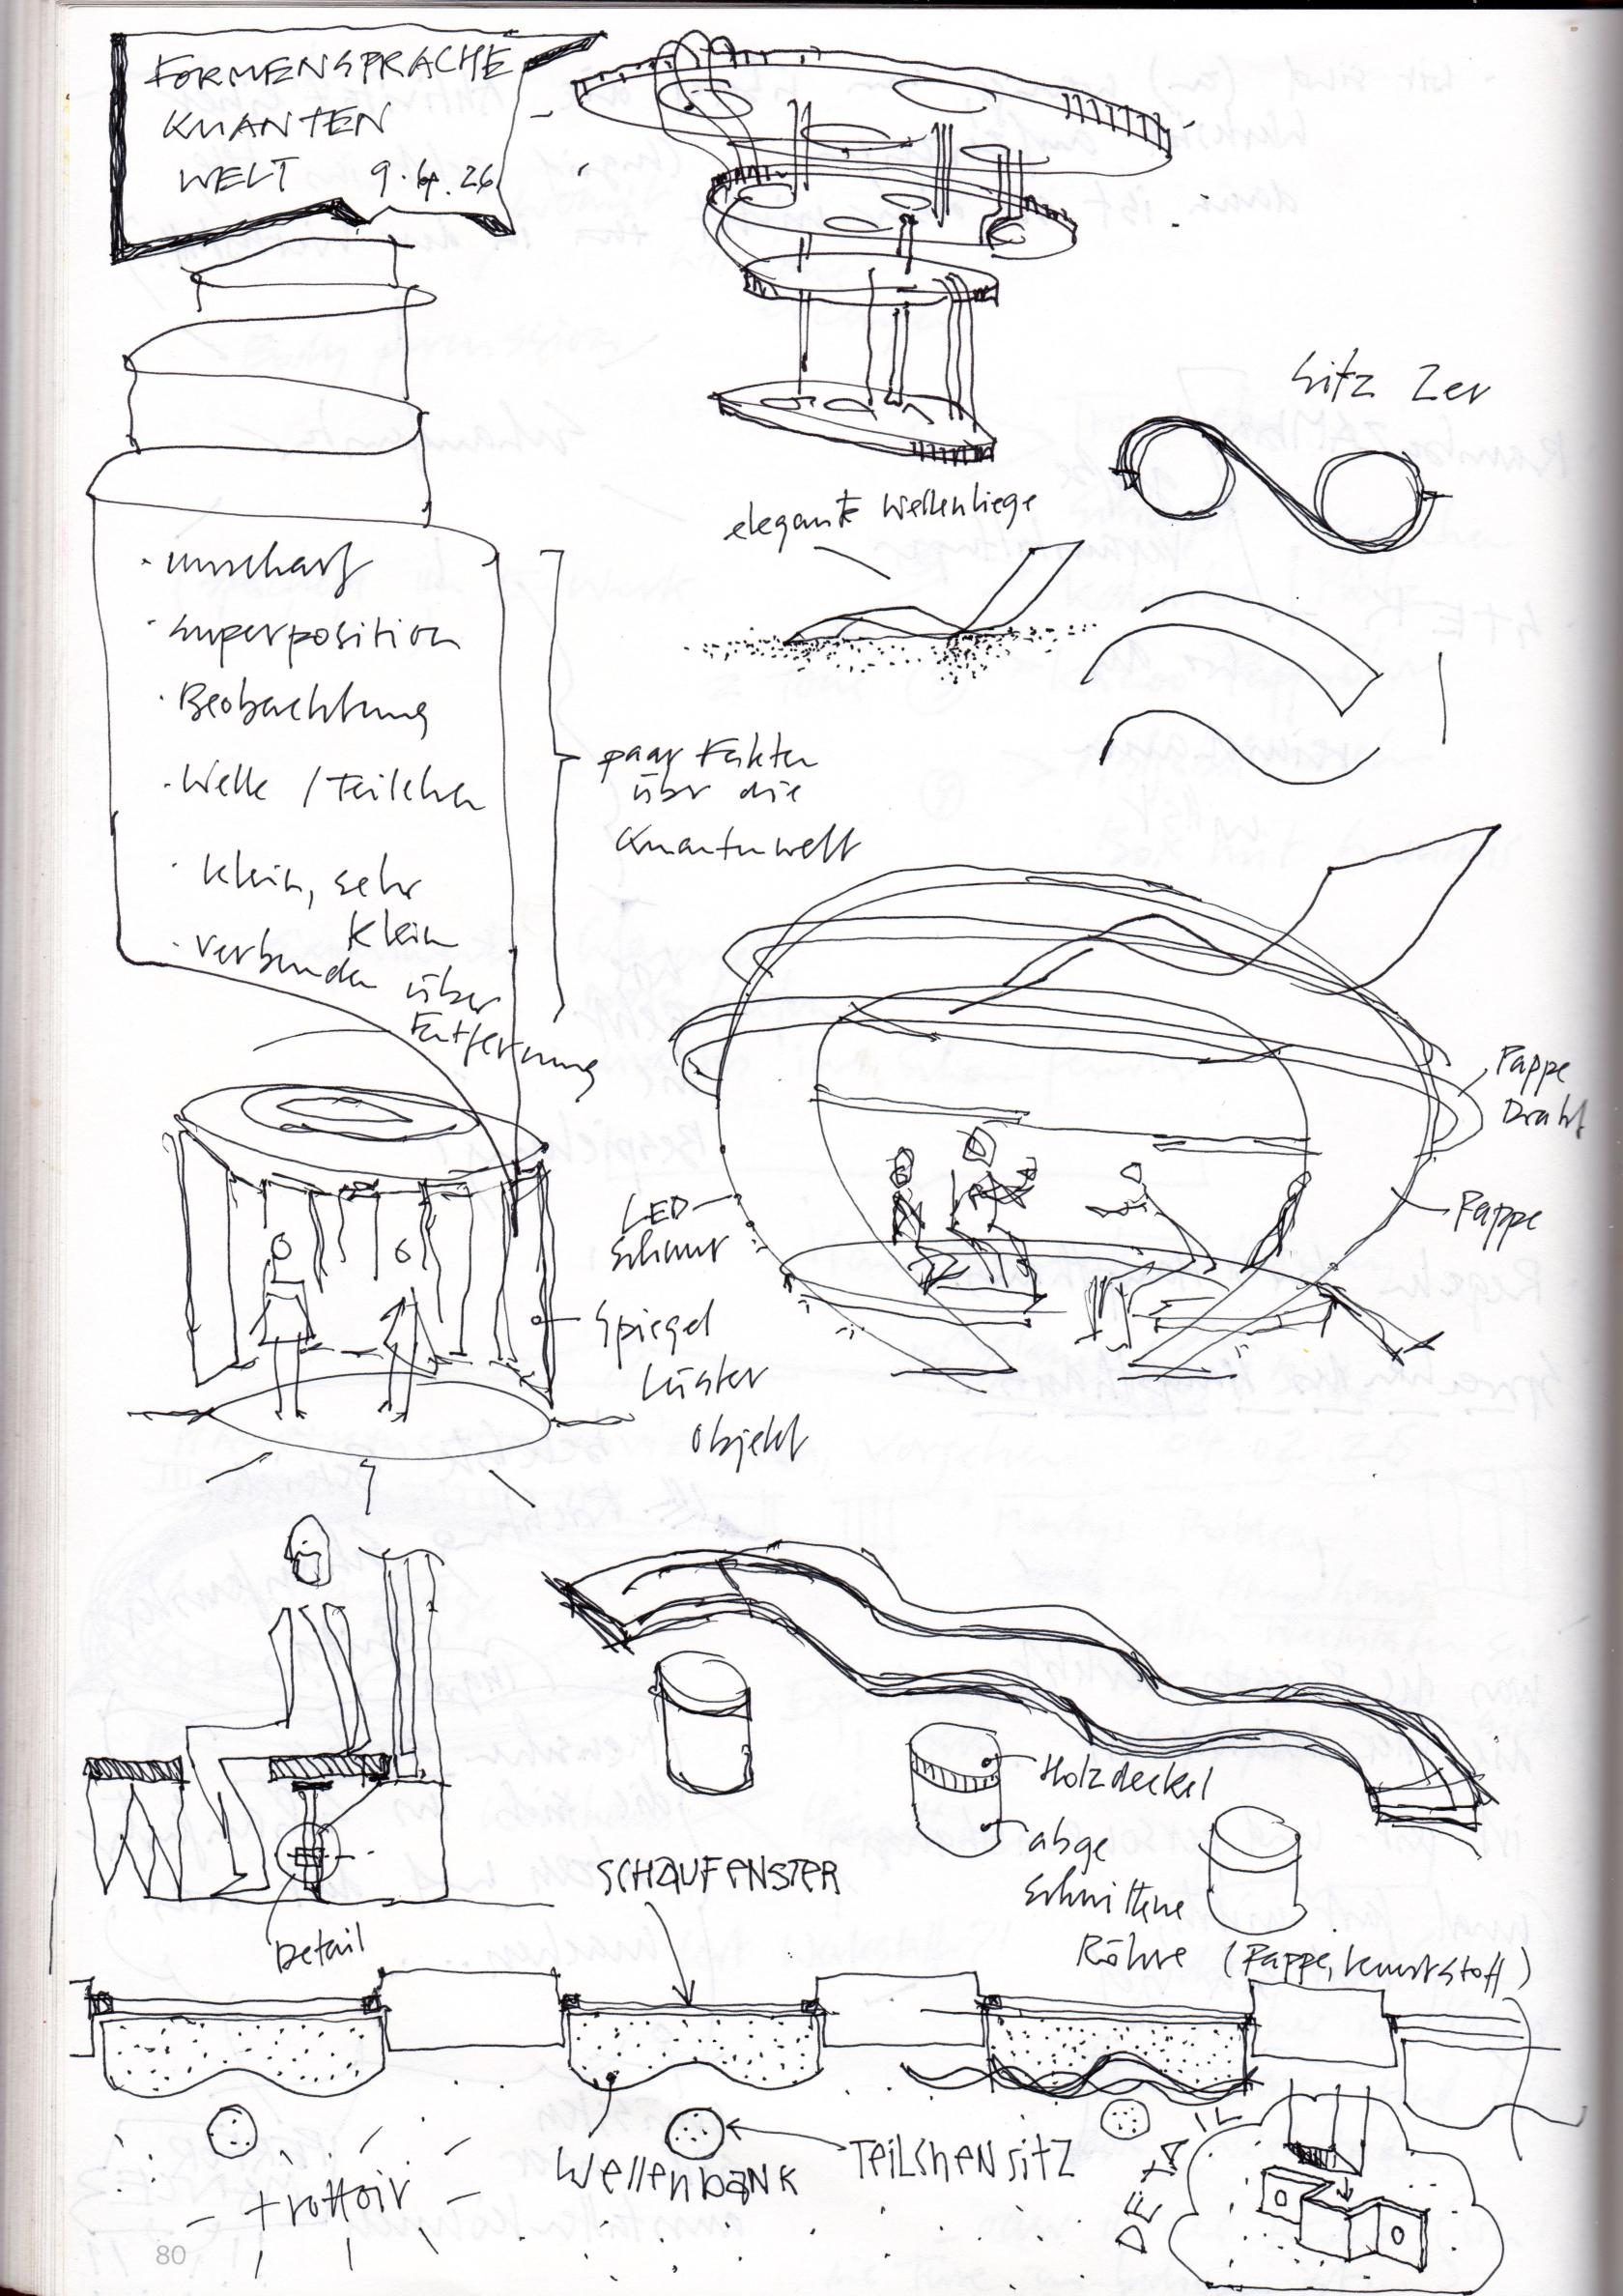 FORMENSPRACHE
KUANTEN
WELT 9.4.26
Sitz 2er
elegante Wellenliege
· unscharf
· Superposition
· Beobachtung
· Welle / Teilchen
· klein, sehr
klein
· verbunden über
Entfernung
paar Fakten
über die
Quantenwelt
Pappe
Draht
Pappe
LED-
Schnur
Spiegel
Lüster
Objekt
Holzdeckel
abge
schnittene
Röhre (Pappe, Kunststoff)
Detail
SCHAUFENSTER
Wellenbank
TEILCHENSITZ
trottoir
DETAIL
80